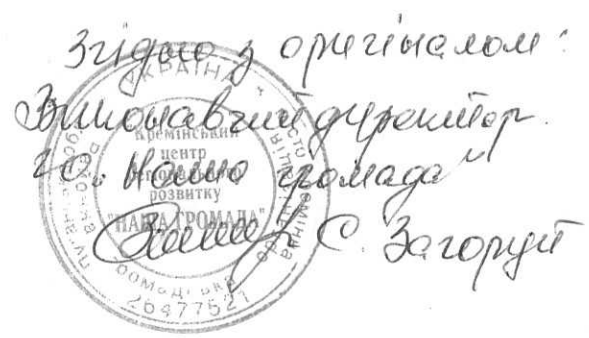 Згідно з оригіналом:
Виконавчий директор
ГО. Наша громада"
С. Загоруй
УКРАЇНА
Кремінський
центр
розвитку
"НАША ГРОМАДА"
26477521